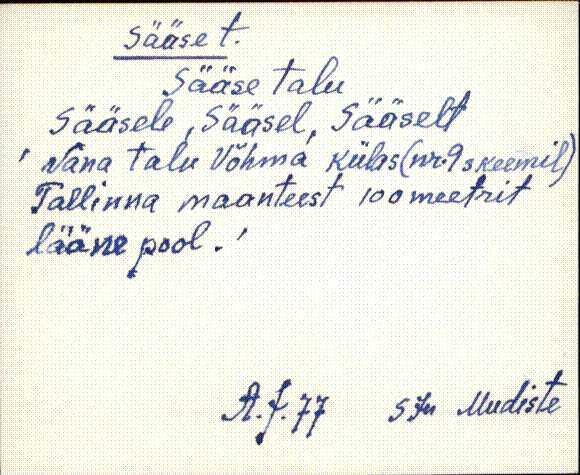 Sääse t.
Sääse talu
Sääsele, Sääsel, Sääselt
' Vana talu Võhma külas (nr. 9 skeemil)
Tallinna maanteest 100 meetrit
lääne pool.'
A.J. 77 SJn Mudiste